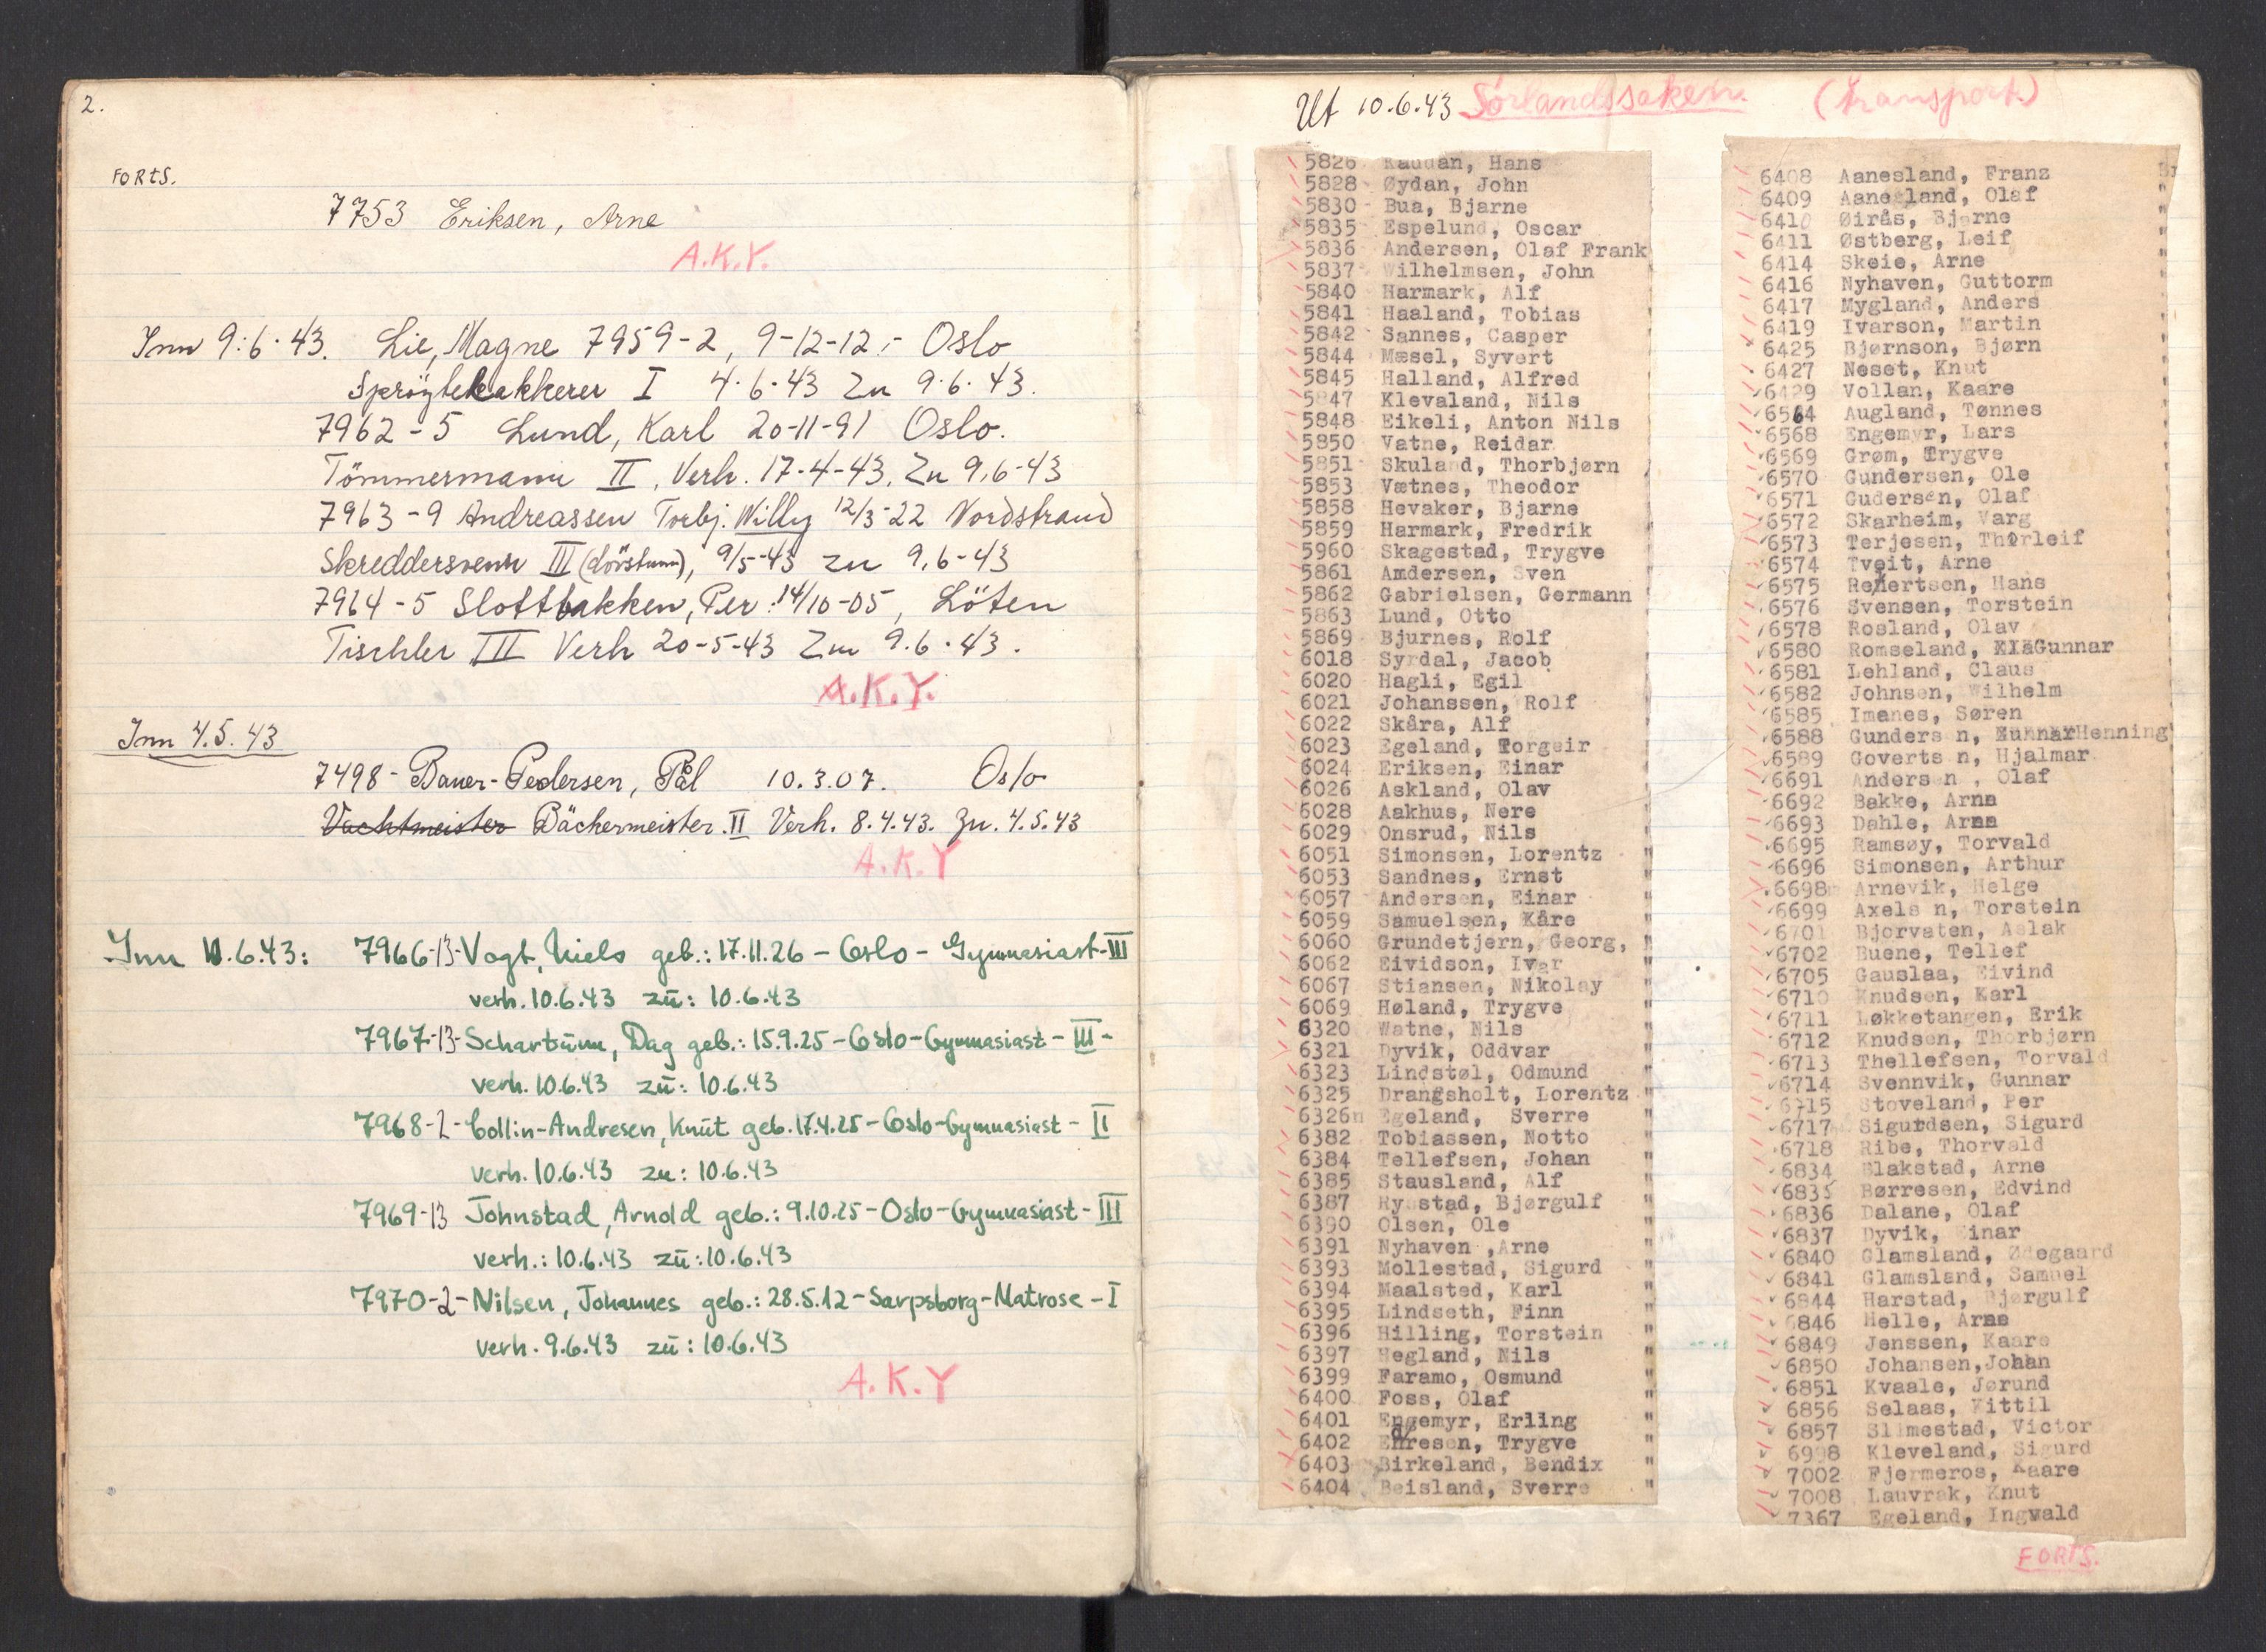 2.
FORTS.
7753 Eriksen, Arne
A.K.Y.
Inn 9.6.43. Lie, Magne 7959-2, 9-12-12,- Oslo
Sprøytelakkerer I 4.6.43 Zu 9.6.43.
7962-5 Lund, Karl 20-11-91 Oslo.
Tömmermann II, Verh. 17-4-43, Zu 9.6-43
7963-9 Andreassen Torbj. Willy 12/3-22 Nordstrand
Skreddersvenn III, 9/5-43 zu 9.6-43
7964-5 Slottbakken, Per: 14/10-05, Löten
Tischler III Verh 20-5-43 Zu 9.6.43.
A.K.Y.
Inn 4.5.43
7498- Bauer-Pedersen, Pål 10.3.07. Oslo
Vachtmeister Bäckermeister. II Verh. 8.4.43. Zu. 4.5.43
A.K.Y
Inn 10.6.43: 7966-13-Vogt, Niels geb.: 17.11.26 - Oslo - Gymnasiast-III
verh. 10.6.43 zū: 10.6.43
7967-13-Schartūm, Dag geb.: 15.9.25-Oslo-Gymnasiast-III-
verh. 10.6.43 zū: 10.6.43
7968-2-Collin-Andresen, Knūt geb. 17.4.25-Oslo-Gymnasiast-II
verh. 10.6.43 zu: 10.6.43
7969-13 Johnstad, Arnold geb.: 9.10.25-Oslo-Gymnasiast-III
verh.: 10.6.43 zū: 10.6.43
7970-2-Nilsen, Johannes geb.: 28.5.12-Sarpsborg-Matrose-I
verh. 9.6.43 zū: 10.6.43
A.K.Y
Ut 10.6.43 Sørlandssaken. (Transport)
5826 Kaddan, Hans
5828 Øydan, John
5830 Bua, Bjarne
5835 Espelund, Oscar
5836 Andersen, Olaf Frank
5837 Wilhelmsen, John
5840 Harmark, Alf
5841 Haaland, Tobias
5842 Sannes, Casper
5844 Mæsel, Syvert
5845 Halland, Alfred
5847 Klevaland, Nils
5848 Eikeli, Anton Nils
5850 Vatne, Reidar
5851 Skuland, Thorbjørn
5853 Vætnes, Theodor
5858 Hevaker, Bjarne
5859 Harmark, Fredrik
5960 Skagestad, Trygve
5861 Amdersen, Sven
5862 Gabrielsen, Germann
5863 Lund, Otto
5869 Bjurnes, Rolf
6018 Syrdal, Jacob
6020 Hagli, Egil
6021 Johanssen, Rolf
6022 Skåra, Alf
6023 Egeland, Torgeir
6024 Eriksen, Einar
6026 Askland, Olav
6028 Aakhus, Nere
6029 Onsrud, Nils
6051 Simonsen, Lorentz "
6053 Sandnes, Ernst "
6057 Andersen, Einar "
6059 Samuelsen, Kåre "
6060 Grundetjern, Georg, "
6062 Eividson, Ivar "
6067 Stiansen, Nikolay "
6069 Høland, Trygve "
6320 Watne, Nils "
6321 Dyvik, Oddvar "
6323 Lindstøl, Odmund "
6325 Drangsholt, Lorentz "
6326 Egeland, Sverre "
6382 Tobiassen, Notto "
6384 Tellefsen, Johan "
6385 Stausland, Alf "
6387 Rysstad, Bjørgulf "
6390 Olsen, Ole "
6391 Nyhaven ,Arne "
6393 Mollestad, Sigurd "
6394 Maalsted, Karl "
6395 Lindseth, Finn "
6396 Hilling, Torstein "
6397 Hegland, Nils "
6399 Faramo, Osmund "
6400 Foss, Olaf "
6401 Engemyr, Erling "
6402 Endresen, Trygve "
6403 Birkeland, Bendix "
6404 Beisland, Sverre "
6408 Aanesland, Franz
6409 Aanesland, Olaf
6410 Øirås, Bjarne
6411 Østberg, Leif
6414 Skeie, Arne
6416 Nyhaven, Guttorm
6417 Mygland, Anders
6419 Ivarson, Martin
6425 Bjørnson, Bjørn
6427 Neset, Knut
6429 Vollan, Kaare
6564 Augland, Tønnes
6568 Engemyr, Lars
6569 Grøm, Trygve
6570 Gundersen, Ole
6571 Gudersen, Olaf
6572 Skarheim, Varg
6573 Terjesen, Thorleif
6574 Tveit, Arne
6575 Reinertsen, Hans
6576 Svensen, Torstein
6578 Rosland, Olav
6580 Romseland, Gunnar
6581 Lehland, Claus
6582 Johnsen, Wilhelm
6585 Imenes, Søren
6588 Gundersen, Henning
6589 Govertsen, Hjalmar
6691 Andersen , Olaf
6692 Bakke, Arne
6693 Dahle, Arne
6695 Ramsøy, Torvald
6696 Simonsen, Arthur
6698 Arnevik, Helge
6699 Axelsen, Torstein
6701 Bjorvaten, Aslak
6702 Buene, Tellef
6705 Gauslaa, Eivind
6710 Knudsen, Karl
6711 Løkketangen, Erik
6712 Knudsen, Thorbjørn
6713 Thellefsen, Torvald
6714 Svennvik, Gunnar
6715 Stoveland, Per
6717 Sigurdsen, Sigurd
6718 Ribe, Thorvald
6834 Blakstad, Arne
6835 Børresen, Edvind
6836 Dalane, Olaf
6837 Dyvik, Einar
6840 Glamsland, Ødegaard
6841 Glamsland, Samuel
6844 Harstad, Bjørgulf
6846 Helle, Arne
6849 Jenssen, Kaare
6850 Johansen,Johan
6851 Kvaale, Jørund
6856 Selaas, Kittil
6857 Slimestad, Victor
6998 Kleveland, Sigurd
7002 Fjermeros, Kaare
7008 Lauvrak, Knut
7367 Egeland, Ingvald
FORTS.